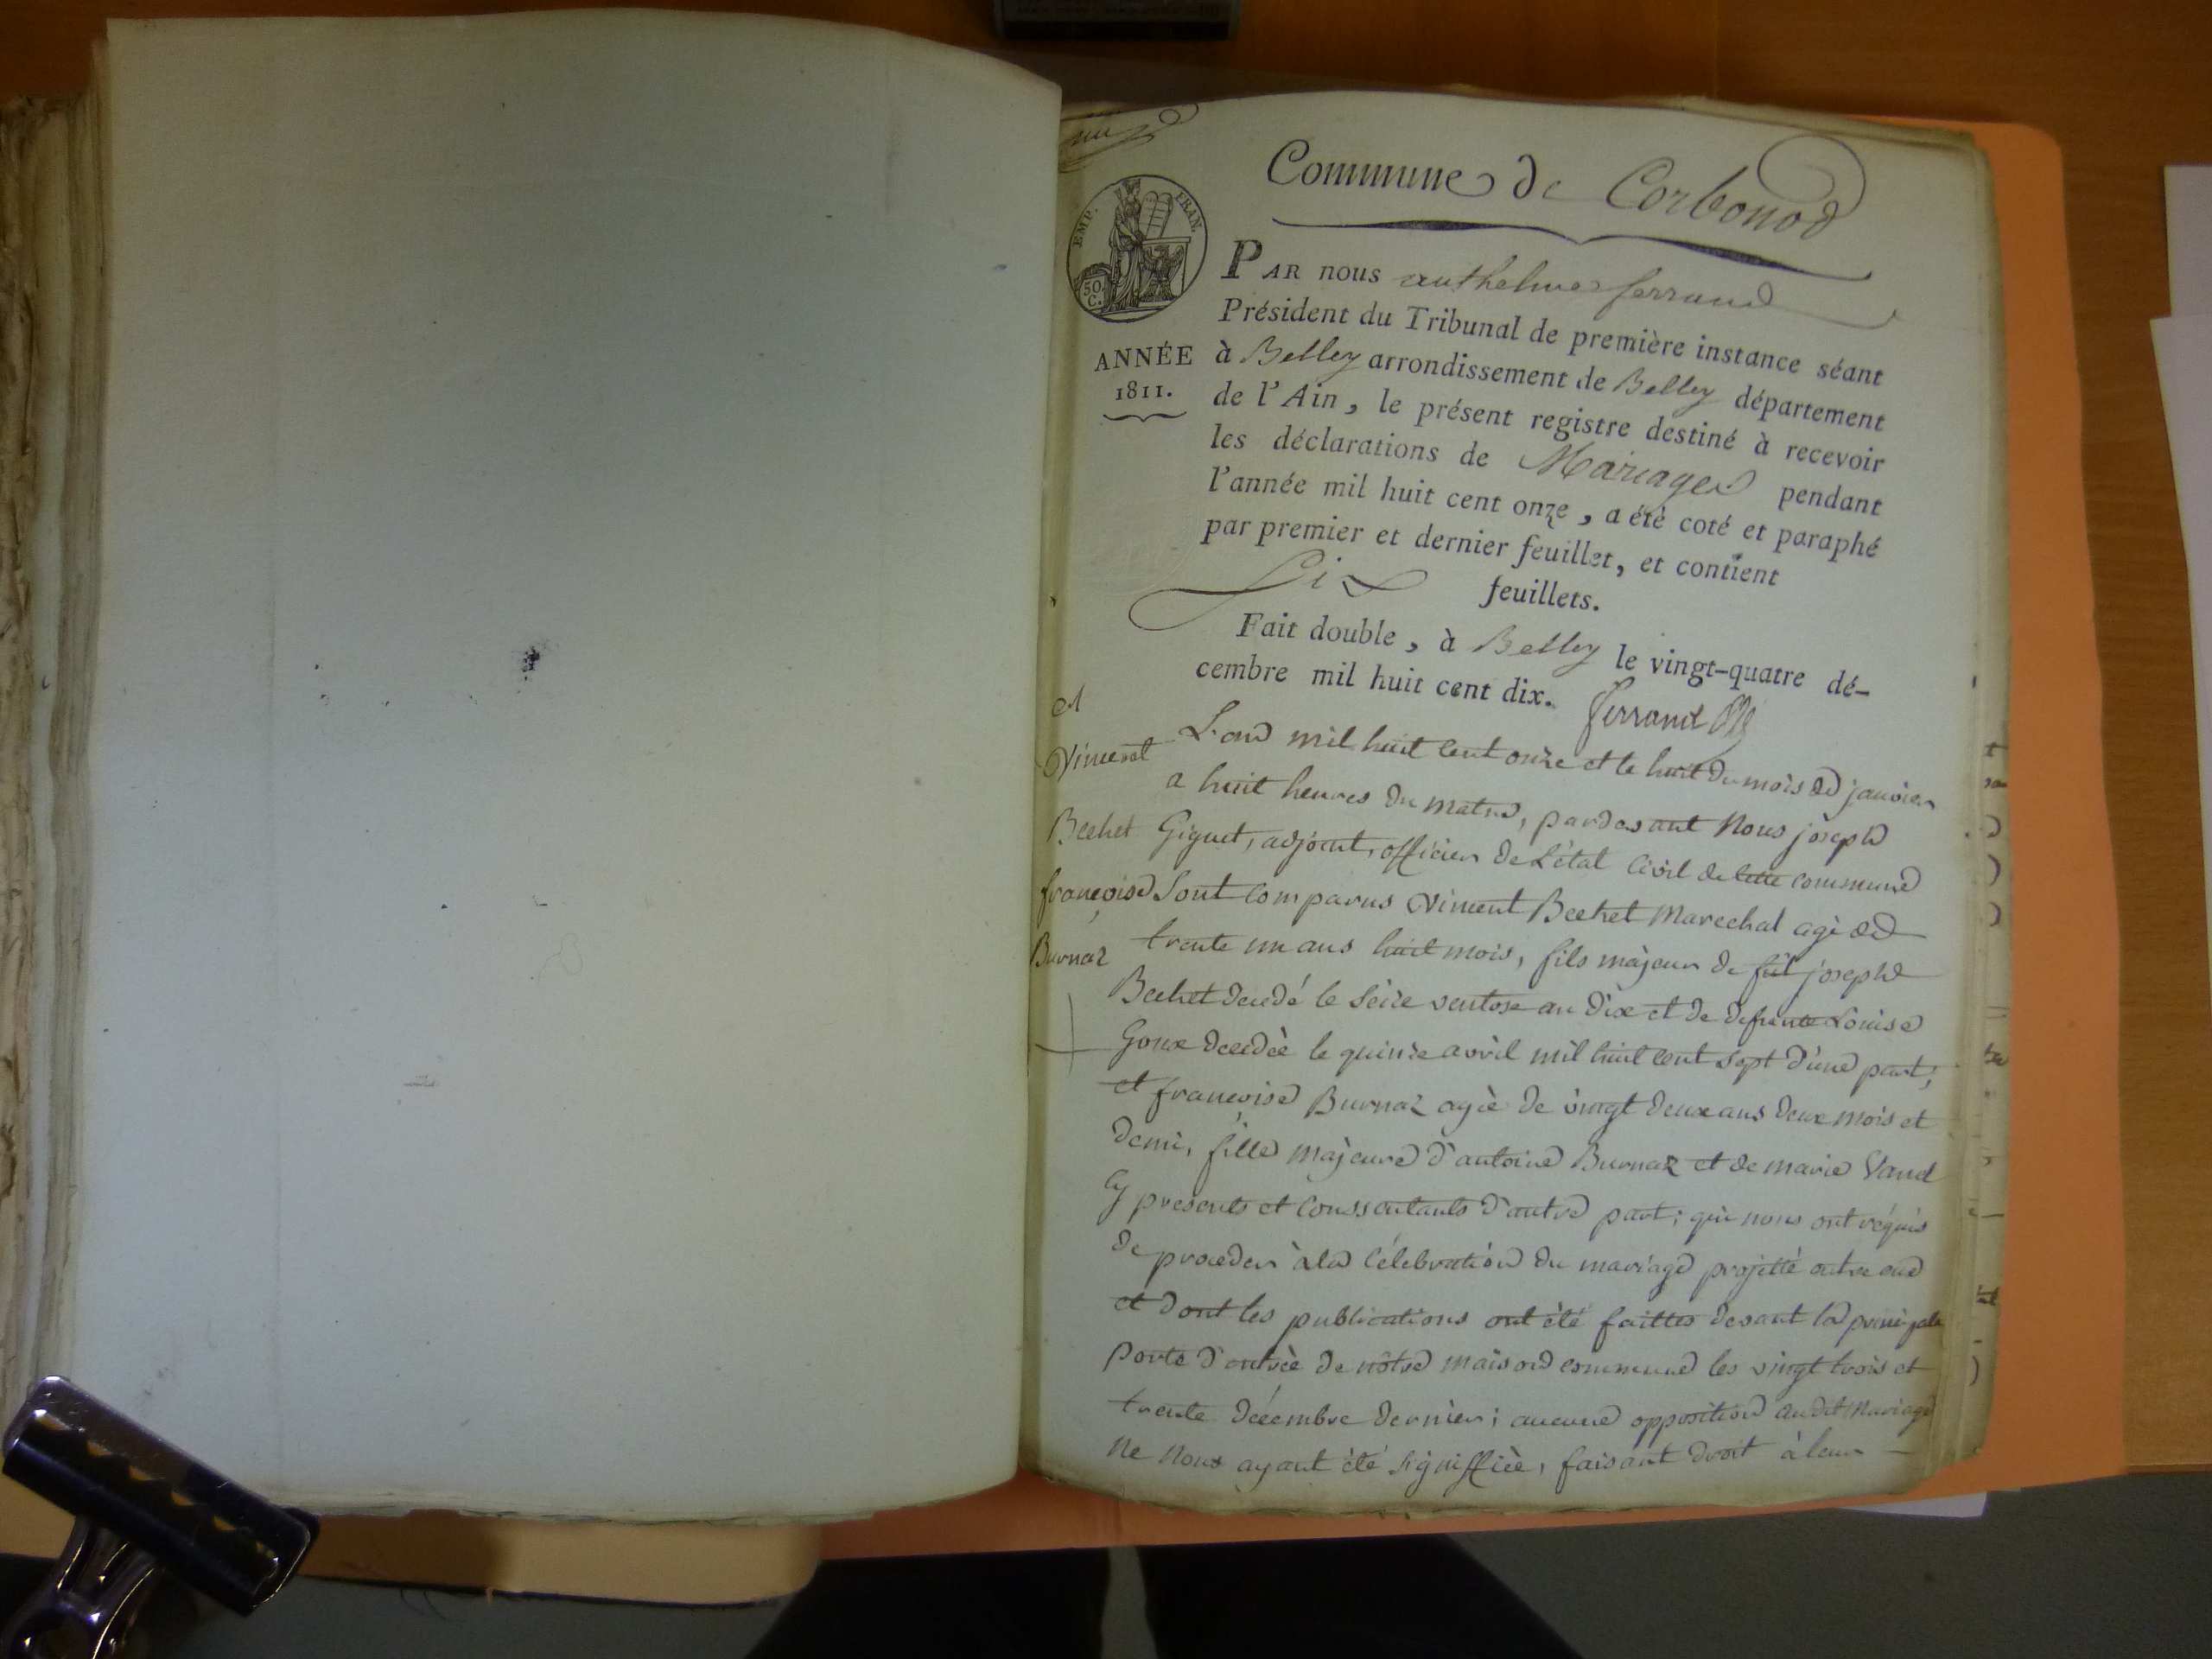 Commune de Corbonod
EMP. FRAN.
50.
C.
ANNÉE
1811.
PAR nous anthelme ferrand
Président du Tribunal de première instance séant
à Belley arrondissement de Belley département
de l'Ain, le présent registre destiné à recevoir
les déclarations de Mariages pendant
l'année mil huit cent onze, a été coté et paraphé
par premier et dernier feuillet, et contient
Six feuillets.
Fait double, à Belley le vingt-quatre dé-
cembre mil huit cent dix. ferrand
Vincent
Bechet
françoise
Burnaz
L'an mil huit cent onze et le huit du mois de janvier
a huit heures du matin, pardevant Nous joseph
Giguet, adjoint, officier de L'état Civil de cette commune
Sont comparus Vincent Bechet Marechal agé de
trente un ans huit mois, fils majeur de fût joseph
Bechet decedé le Seize ventose an dix et de defunte Louise
Goux decedèe le quinze avril mil huit cent sept d'une part;
et françoise Burnaz agèe de vingt deux ans deux mois et
demi, fille majeure d'antoine Burnaz et de marie Vaud
Cy presents et Conssentants d'autre part; qui nous ont réquis
de proceder à la Célebration du mariage projetté entre eux
et dont les publications ont été faittes devant la principale
Porte d'entrèe de nôtre maison commune les vingt trois et
trente décembre dernier; aucune opposition audit Mariage
Ne Nous ayant été Signiffièe, faisant droit à leur